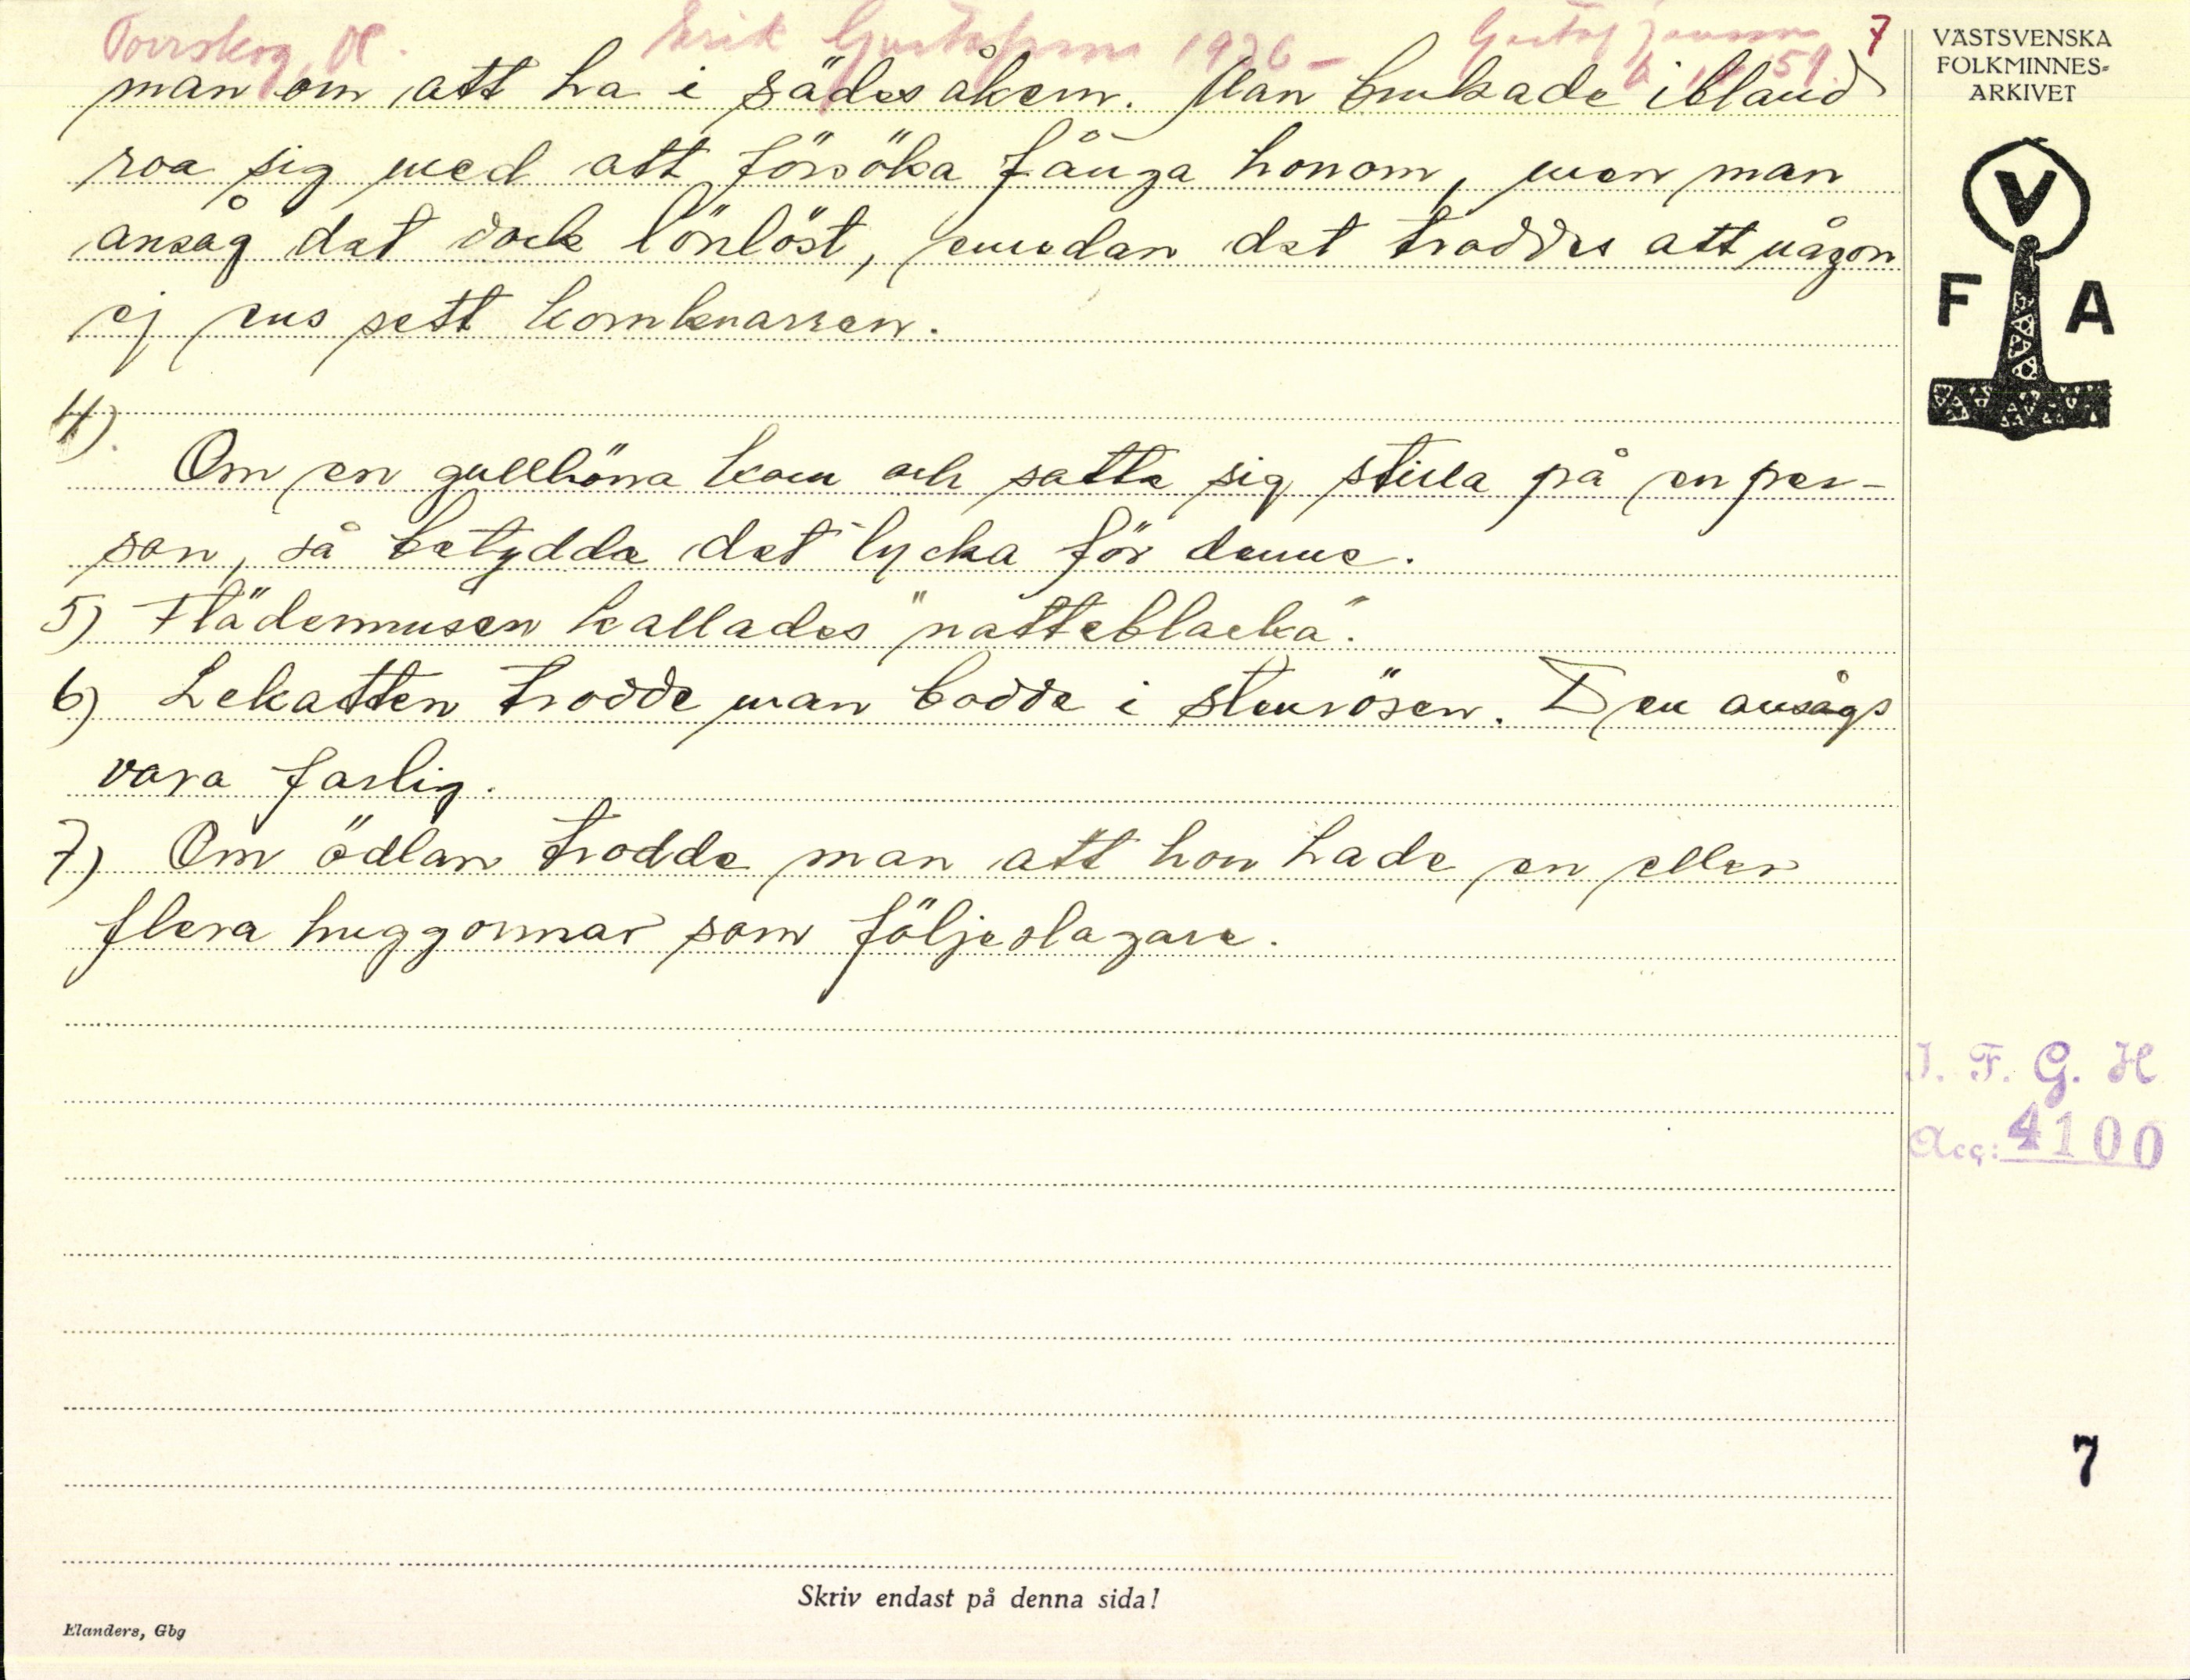 Torrskog, Dl. Erik Gustafsson 1936 - Gustaf Jansson 7
59.
man om att ha i sädesåkern. Man brukade ibland
roa sig med att försöka fånga honom, men man
ansåg det dock lönlöst, emedan det troddes att någon
ej ens sett kornknarren.
4)
Om en gullhöna kom och satte sig stilla på en per-
son, så betydde det lycka för denne.
5) Flädermusen kallades "natteblacka".
6) Lekatten trodde man bodde i stenrösen. Den ansågs
vara farlig.
7) Om ödlan trodde man att hon hade en eller
flera huggormar som följeslagare.
VÄSTSVENSKA
FOLKMINNES-
ARKIVET
V
F A
I. F. G. H
Acc: 4100
7
Skriv endast på denna sida!
Elanders, Gbg